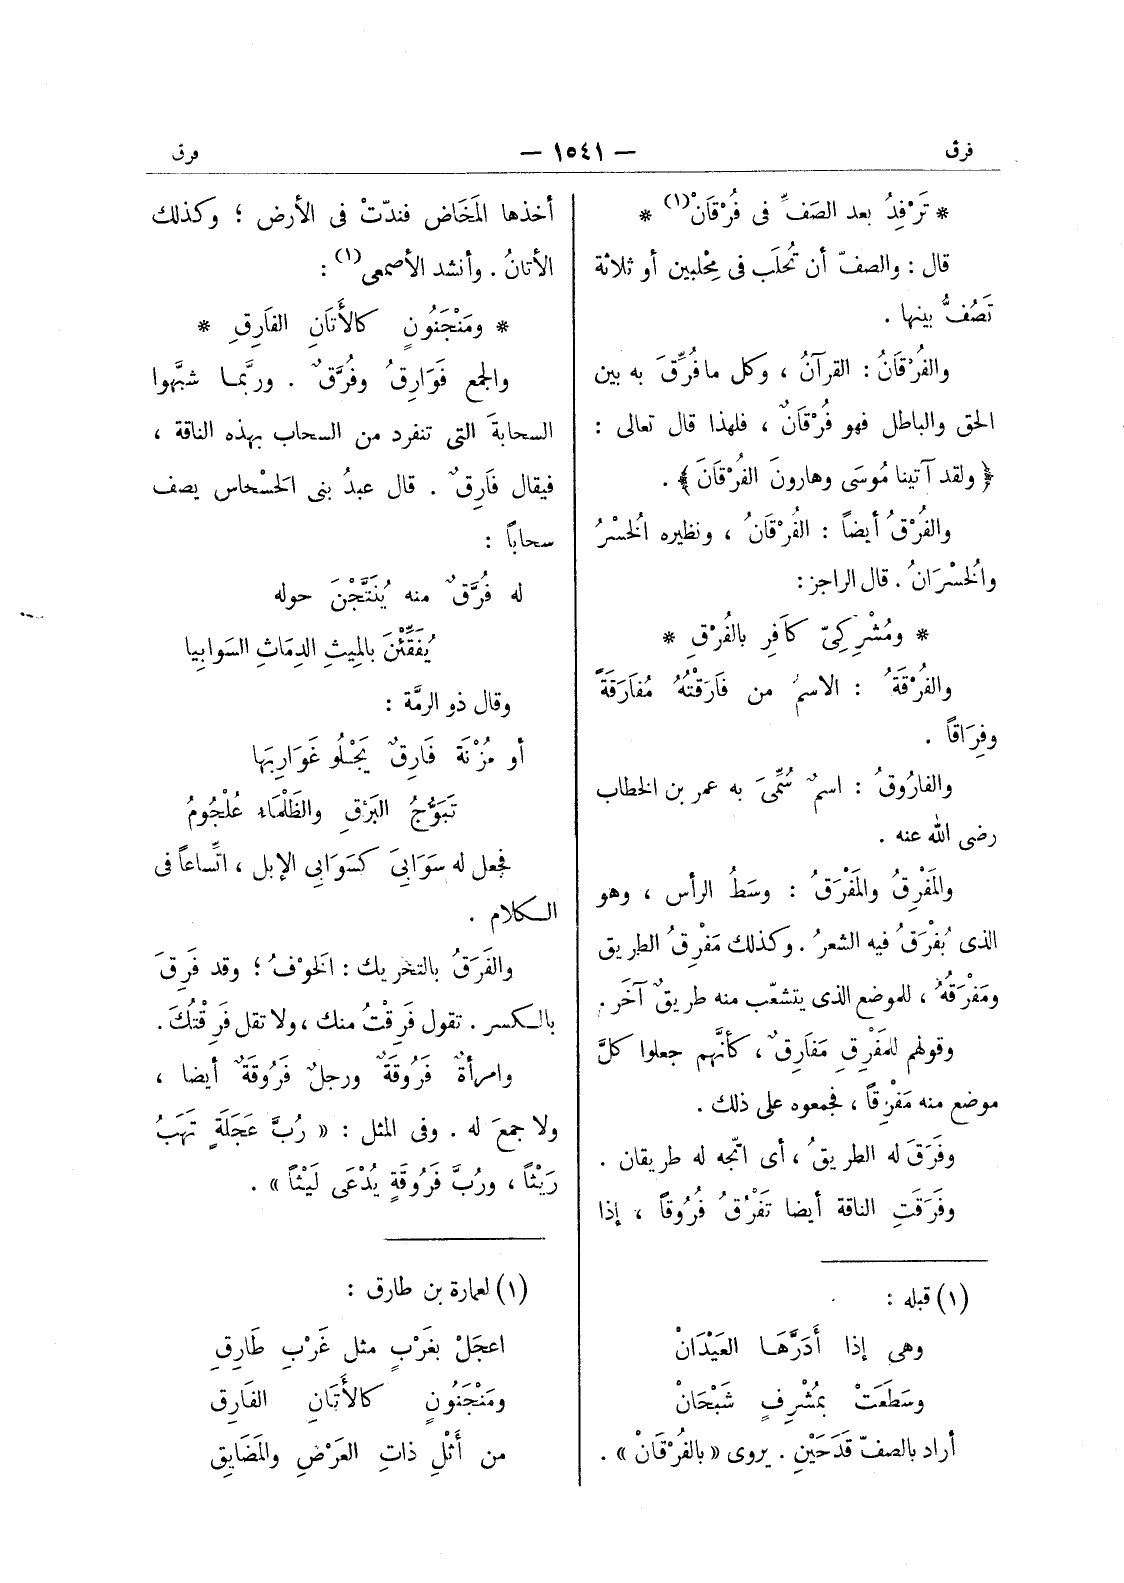 فرق — ١٥٤١ — فرق
* تَرْفِدُ بعد الصَفِّ فى فُرْقَانْ(١) *
قال : والصفّ أن تُحلَب فى مِحْلبين أو ثلاثة
تَصُفُّ بينها .
والفُرْقَانُ : القرآنُ ، وكل مافُرِّقَ به بين
الحق والباطل فهو فُرْقَانٌ ، فلهذا قال تعالى :
﴿ ولقد آتينا مُوسَى وهارونَ الفُرْقَانَ ﴾ .
والفُرْقُ أيضاً : الفُرْقَانُ ، ونظيره الخُسْرُ
والخُسْرَانُ . قال الراجز :
* ومُشْرِكِىّ كَافِرٍ بالفُرْقِ *
والفُرْقَةُ : الاسمُ من فَارَقْتُهُ مُفَارَقَةً
وفِرَاقاً .
والفارُوقُ : اسمٌ سُمِّىَ به عمر بن الخطاب
رضى الله عنه .
والمَفْرِقُ والمَفْرَقُ : وسَطُ الرأس ، وهو
الذى يُفْرَقُ فيه الشعرُ . وكذلك مَفْرِقُ الطريق
ومَفْرَقُهُ ، للموضع الذى يتشعّب منه طريقٌ آخَر .
وقولهم للمَفْرِقِ مَفَارِقٌ ، كأنَّهم جعلوا كلَّ
موضع منه مَفْرِقاً ، فجمعوه على ذلك .
وفَرَقَ له الطريقُ ، أى اتّجه له طريقان .
وفَرَقَتِ الناقة أيضا تَفْرُقُ فُرُوقاً ، إذا
(١) قبله :
وهى إذا أَدَرَّهَا العَيْدَانْ
وسَطَعَتْ بمُشْرِفٍ شَبْحَانْ
أراد بالصفّ قَدَحَيْنِ . يروى « بالفُرْقَانْ » .
أخذها المَخَاض فندّتْ فى الأرض ؛ وكذلك
الأتانُ . وأنشد الأصمعى(١) :
* ومَنْجَنُونٍ كالأَتَانِ الفَارِقِ *
والجمع فَوَارِقُ وفُرَّقٌ . وربَّما شبَّهوا
السحابةَ التى تنفرد من السحاب بهذه الناقة ،
فيقال فَارِقٌ . قال عبدُ بنى الحَسْحاس يصف
سحاباً :
له فُرَّقٌ منه يُنَتَّجْنَ حوله
يُفَقِّئْنَ بالمِيثِ الدِمَاثِ السَوابِيا
وقال ذو الرمَّة :
أو مُزْنَة فَارِقٌ يَجْلُو غَوَارِبَها
تَبَوُّجُ البَرْقِ والظَلْمَاء عُلْجُومُ
فجعل له سَوَابِىَ كسَوَابِى الإبل ، اتِّساعاً فى
الكلام .
والفَرَقُ بالتحريك : الخوْفُ ؛ وقد فَرِقَ
بالكسر . تقول فَرِقْتُ منك ، ولا تقل فَرِقْتُكَ .
وامرأةٌ فَرُوقَةٌ ورجلٌ فَرُوقَةٌ أيضا ،
ولا جمعَ له . وفى المثل : « رُبَّ عَجَلَةٍ تَهَبُ
رَيْثاً ، ورُبَّ فَرُوقَةٍ يُدْعَى لَيْثاً » .
(١) لعمارة بن طارق :
اعجَلْ بغَرْبٍ مثل غَرْبِ طَارِقِ
ومَنْجَنُونٍ كالأَتَانِ الفَارِق
من أَثْلِ ذاتِ العَرْضِ والمَضَايِقِ